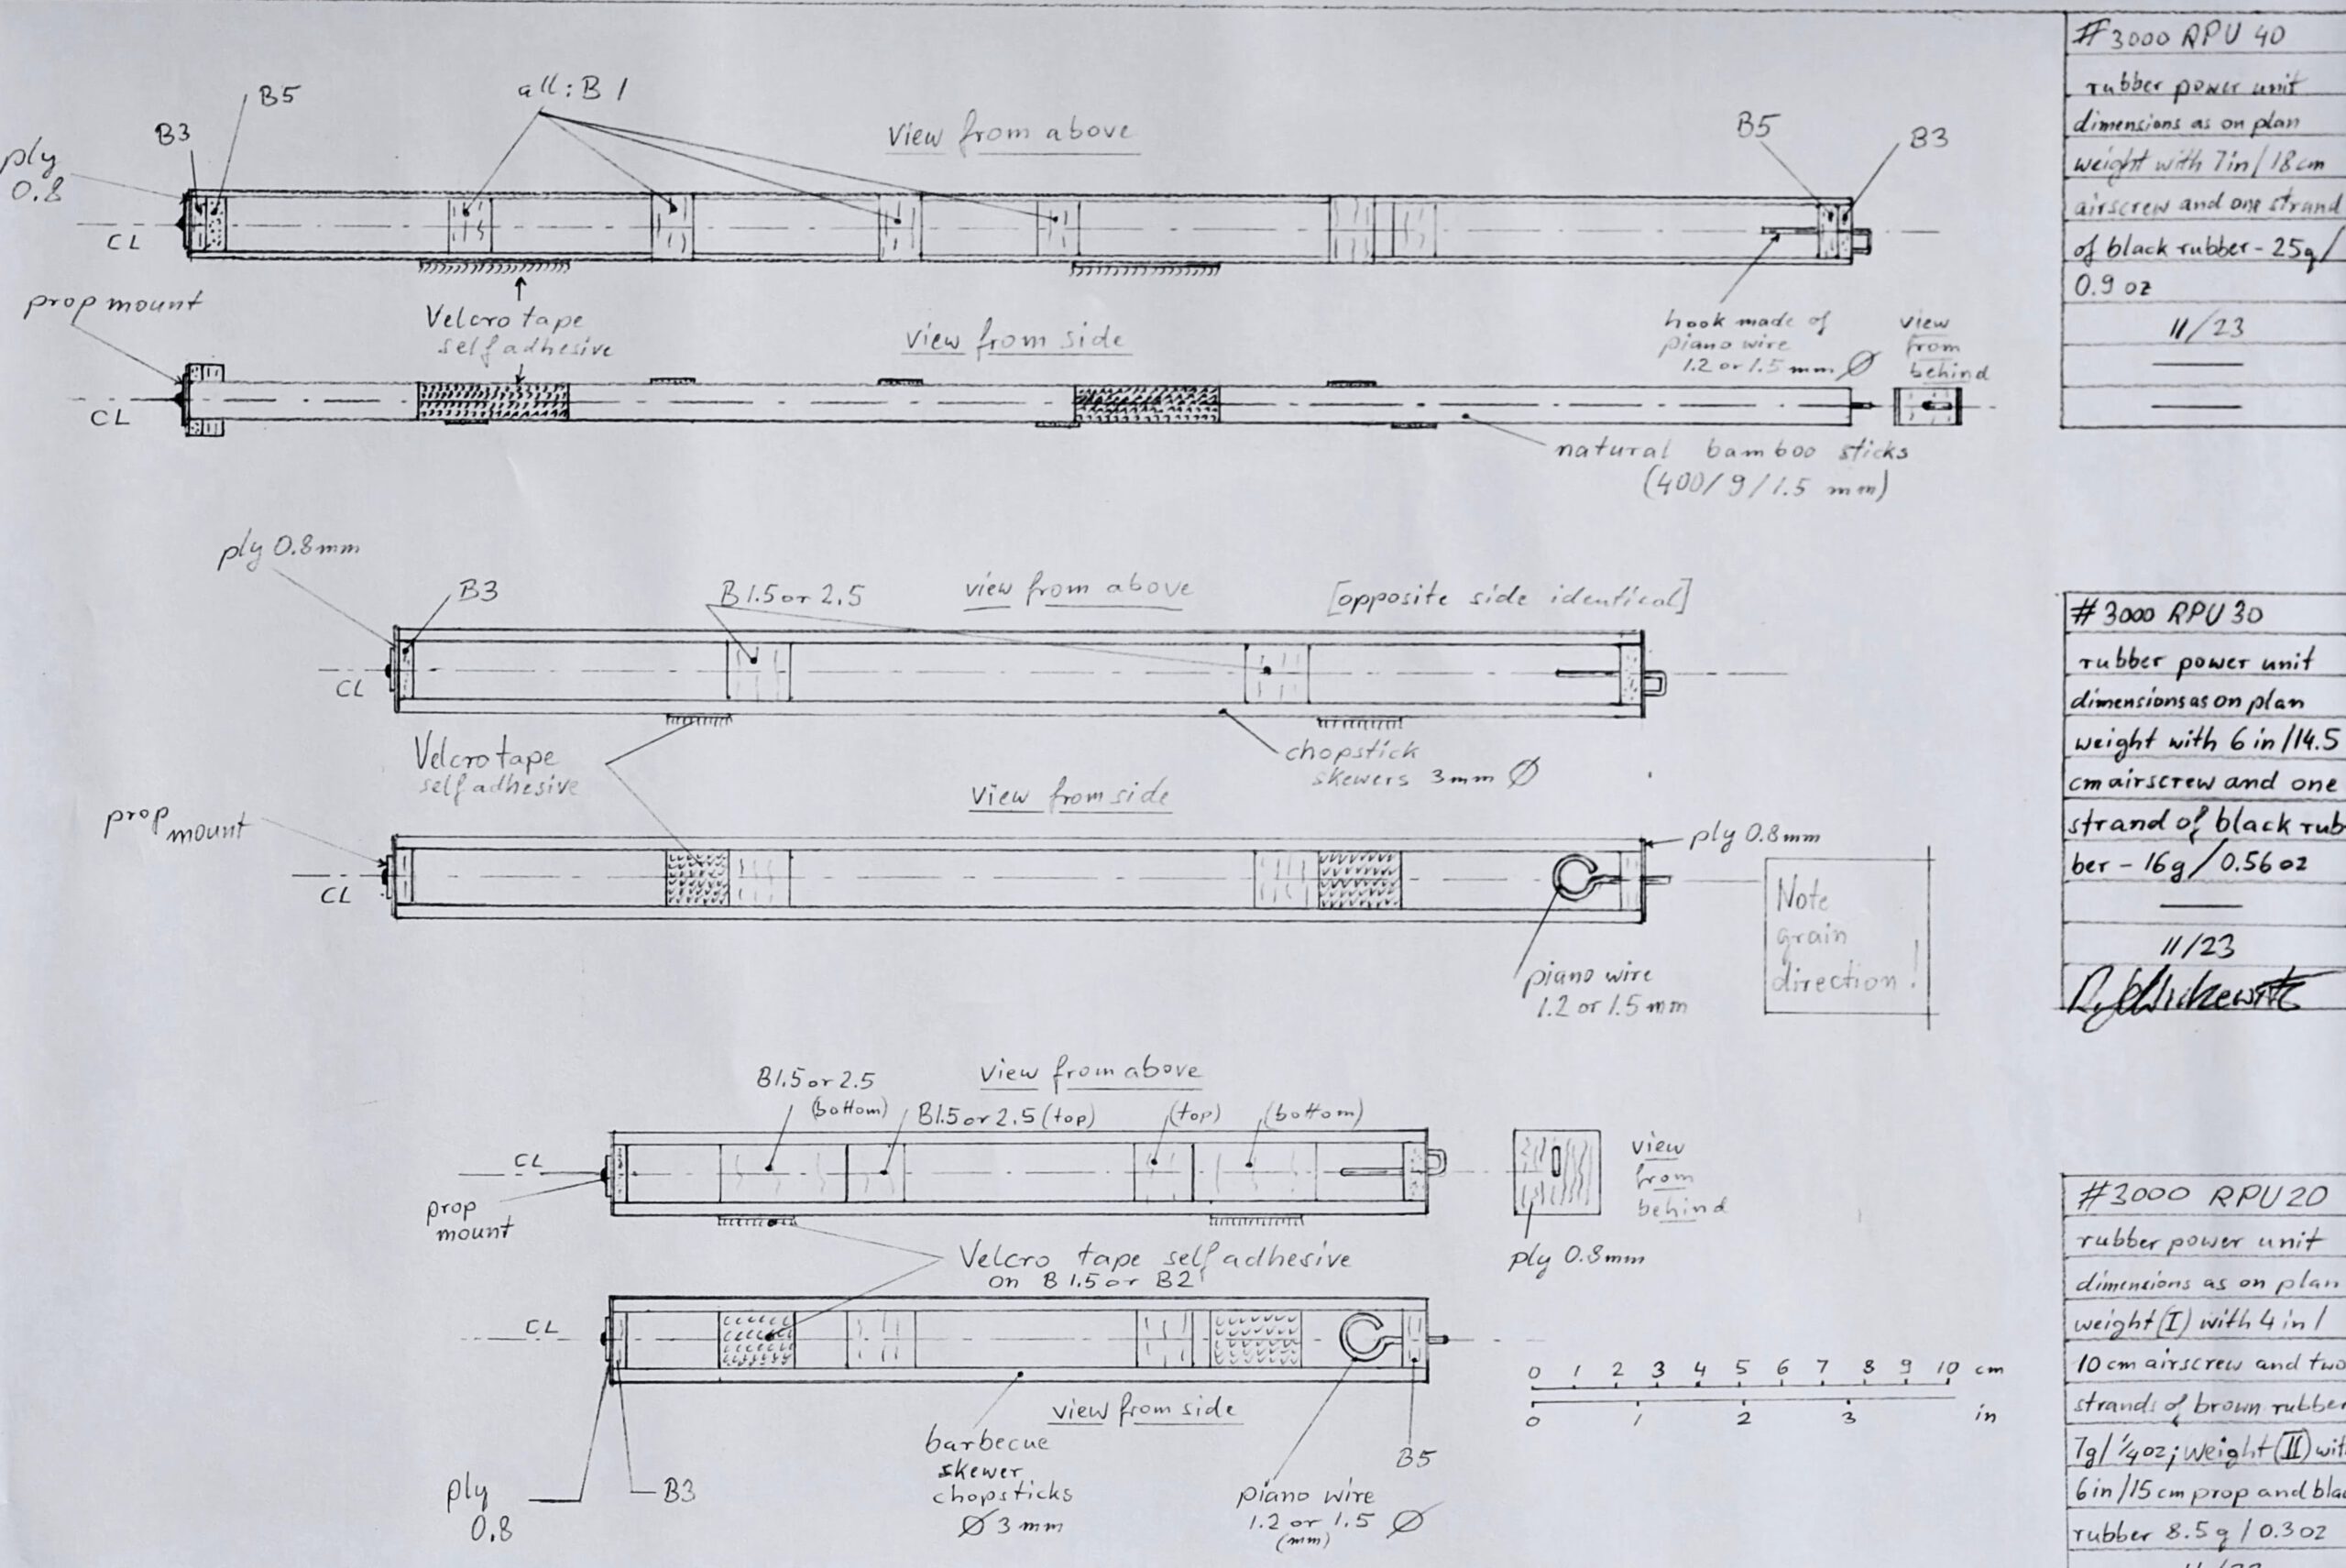 B5
all: B 1
B3
ply
0.8
View from above
B5
B3
CL
prop mount
Velcro tape
self adhesive
View from side
hook made of
piano wire
1.2 or 1.5 mm Ø
view
from
behind
CL
natural bamboo sticks
(400/9/1.5 mm)
ply 0.8mm
B3
B1.5 or 2.5
view from above
[opposite side identical]
CL
Velcro tape
self adhesive
chopstick
skewers 3mm Ø
View from side
prop
mount
ply 0.8mm
CL
Note
grain
direction!
piano wire
1.2 or 1.5 mm
View from above
B1.5 or 2.5
(bottom)
B1.5 or 2.5 (top)
(top)
(bottom)
CL
prop
mount
view
from
behind
ply 0.8mm
Velcro tape self adhesive
on B 1.5 or B2
CL
view from side
barbecue
skewer
chopsticks
Ø 3 mm
piano wire
1.2 or 1.5 Ø
(mm)
B5
ply
0.8
B3
0 1 2 3 4 5 6 7 8 9 10 cm
0 1 2 3 in
#3000 RPU 40
rubber power unit
dimensions as on plan
weight with 7in/18cm
airscrew and one strand
of black rubber - 25g/
0.9 oz
11/23
#3000 RPU 30
rubber power unit
dimensions as on plan
weight with 6 in/14.5
cm airscrew and one
strand of black rub-
ber - 16g/0.56oz
11/23
#3000 RPU 20
rubber power unit
dimensions as on plan
weight (I) with 4 in/
10 cm airscrew and two
strands of brown rubber
7g/¼oz; weight (II) wit
6in/15cm prop and bla
rubber 8.5g/0.3oz